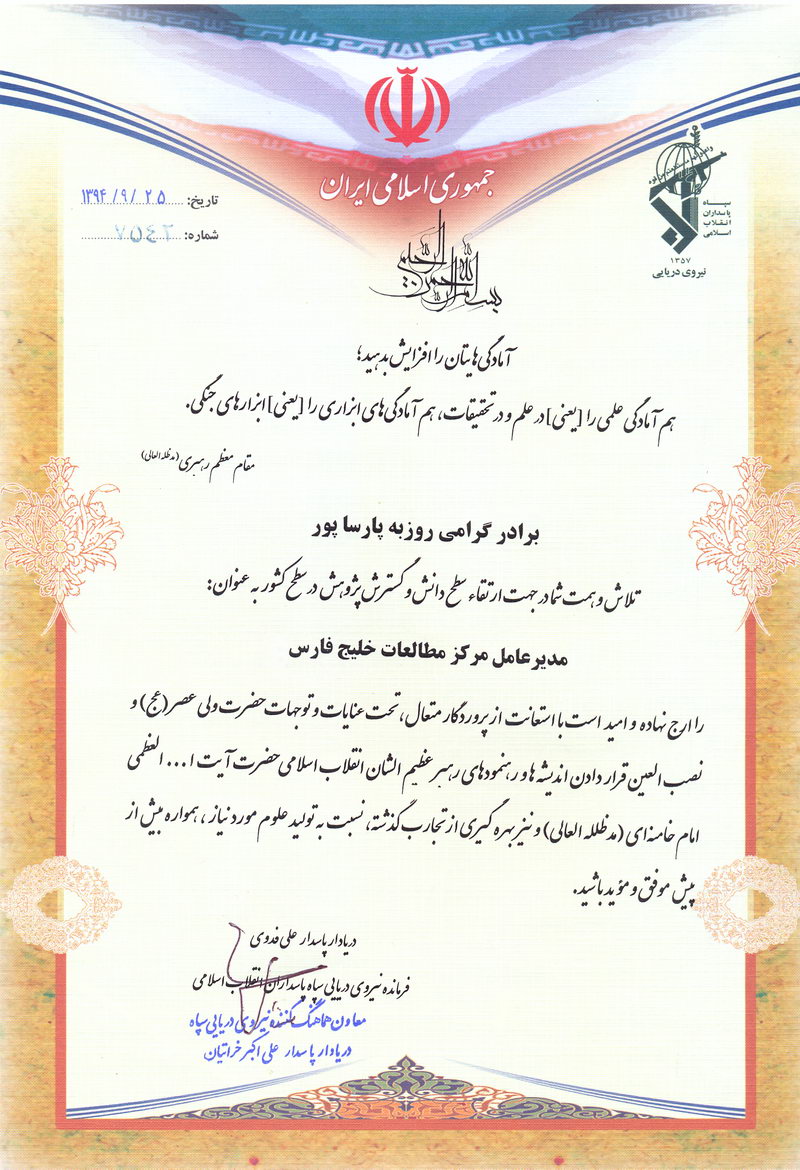 جمهوری اسلامی ایران
تاریخ: ۱۳۹۴/۹/۲۵
شماره: ۷۵۴۲
سپاه
پاسداران
انقلاب
اسلامی
۱۳۵۷
نیروی دریایی
بسم الله الرحمن الرحیم
آمادگی‌هایتان را افزایش بدهید؛
هم آمادگی علمی را [یعنی] در علم و در تحقیقات، هم آمادگی‌های ابزاری را [یعنی] ابزارهای جنگی.
مقام معظم رهبری (مدظله العالی)
برادر گرامی روزبه پارسا پور
تلاش و همت شما در جهت ارتقاء سطح دانش و گسترش پژوهش در سطح کشور به عنوان:
مدیرعامل مرکز مطالعات خلیج فارس
را ارج نهاده و امید است با استعانت از پروردگار متعال، تحت عنایات و توجهات حضرت ولی عصر(عج) و
نصب العین قرار دادن اندیشه ها و رهنمودهای رهبر عظیم الشان انقلاب اسلامی حضرت آیت ا... العظمی
امام خامنه‌ای (مدظلله العالی) و نیز بهره گیری از تجارب گذشته، نسبت به تولید علوم مورد نیاز، همواره بیش از
پیش موفق و مؤید باشید.
دریادار پاسدار علی فدوی
فرمانده نیروی دریایی سپاه پاسداران انقلاب اسلامی
معاون هماهنگ کننده نیروی دریایی سپاه
دریادار پاسدار علی اکبر خراتیان